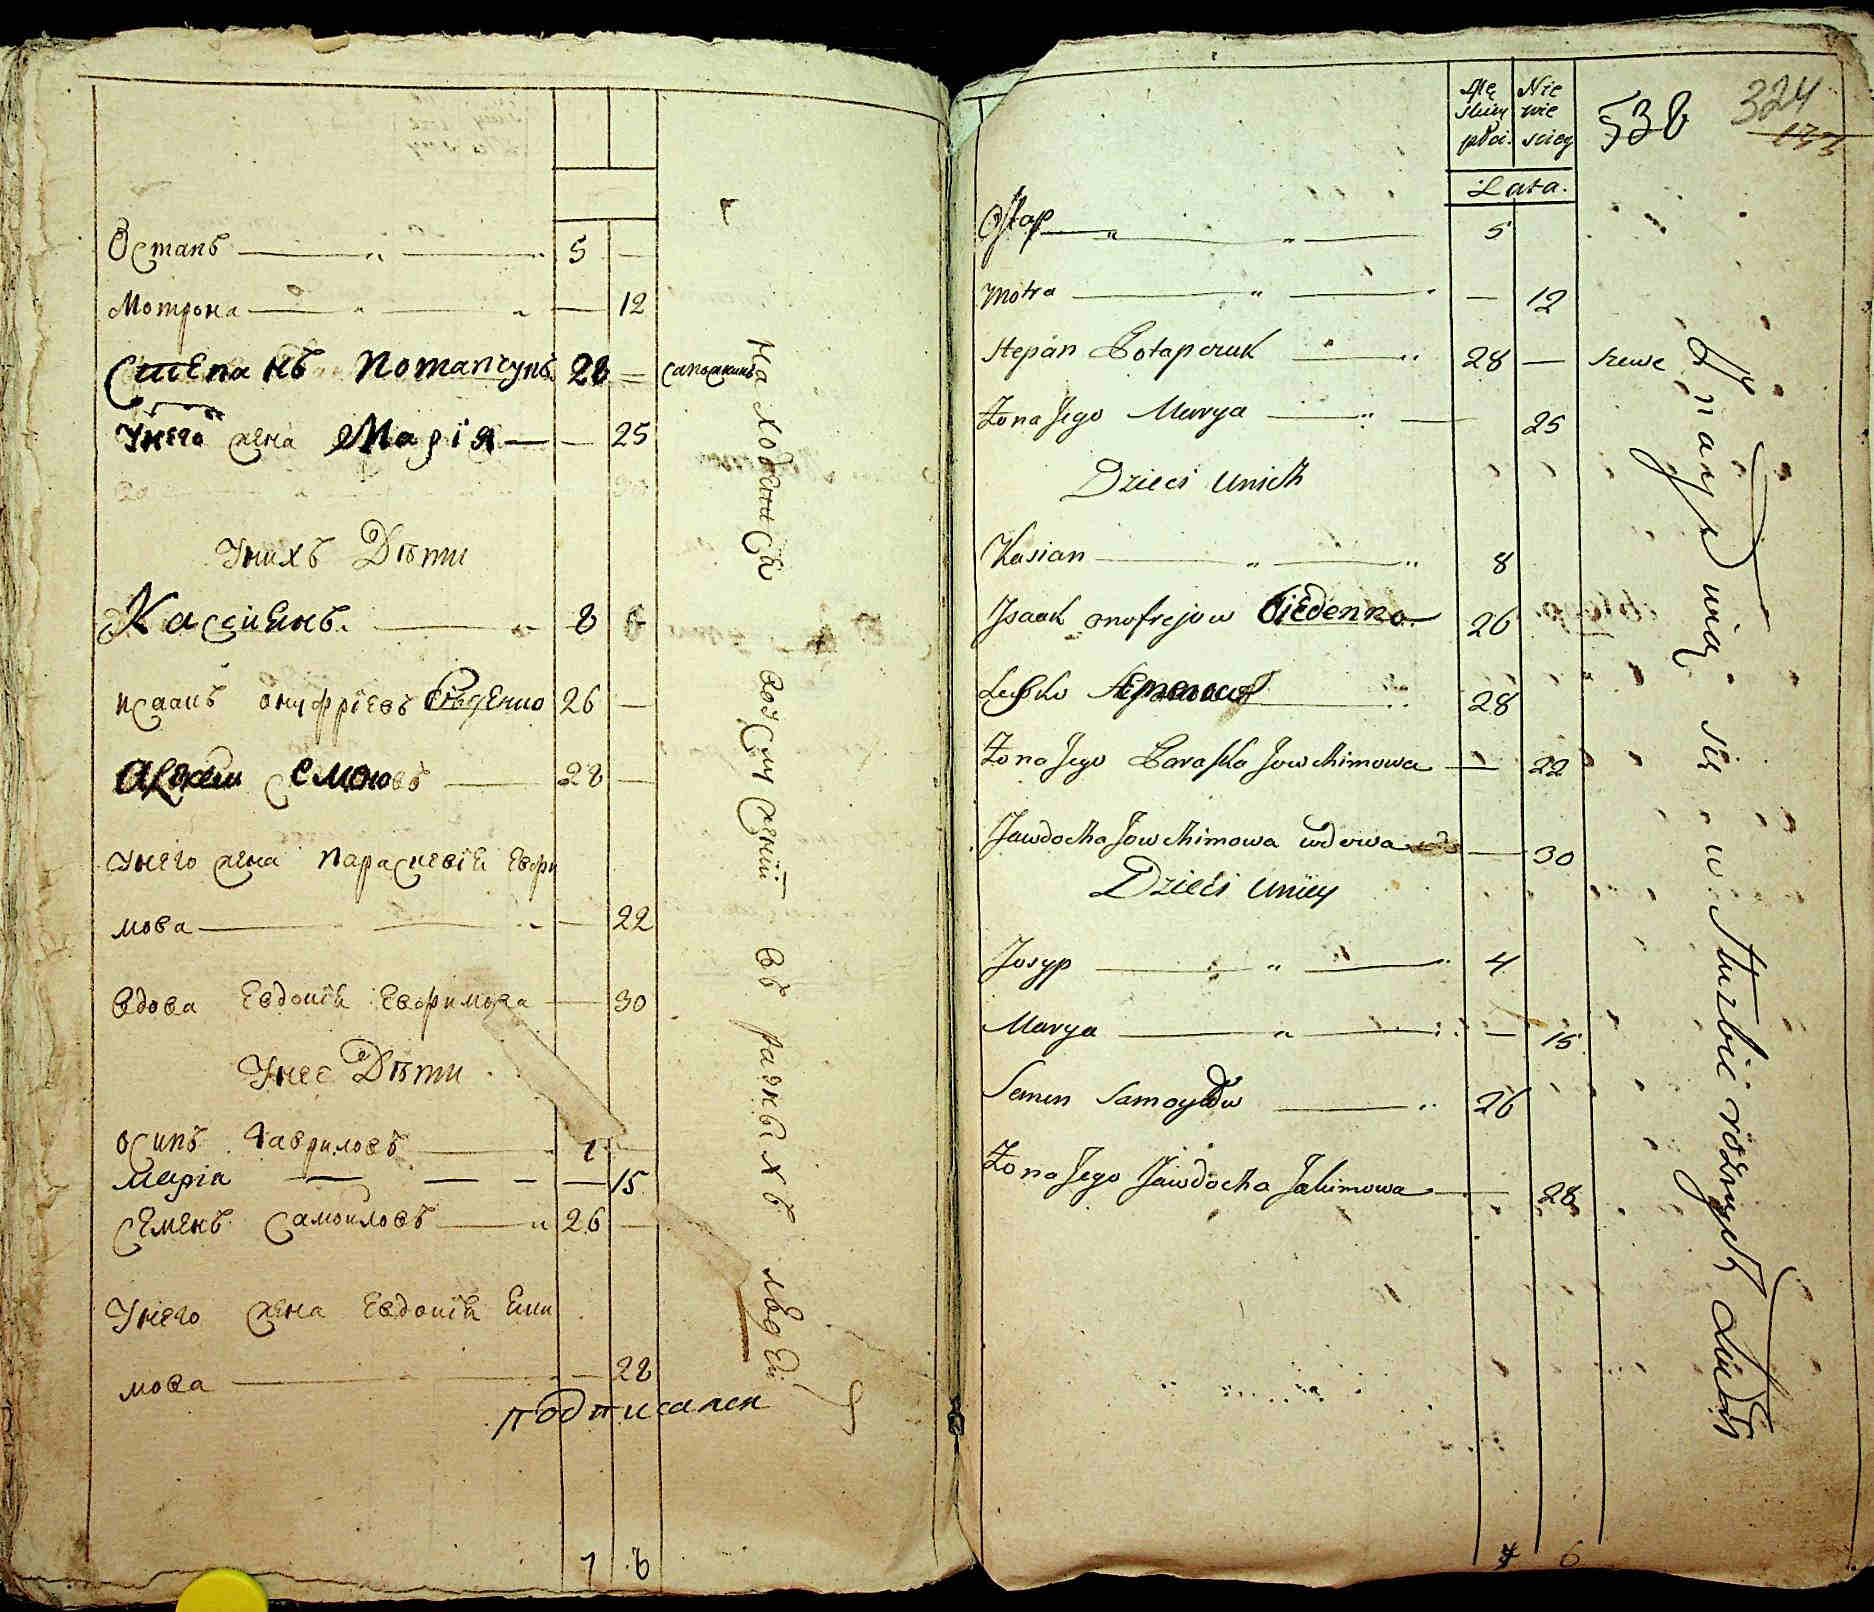 Остапъ 5 —
Мотрона — 12
Степанъ Потапчукъ 28 — сапожникъ
У него жена Марія — 25
У нихъ Дѣти
Кассиянъ 8
Исаакъ Онуфріевъ 26 —
28 —
У него жена Параскевія Евфи
мова — 22
Вдова Евдокія Евфимова — 30
У нее Дѣти
Осипъ Гавриловъ
Марія — 15
Семенъ Самоиловъ 26 —
У него жена Евдокія Еки
мова — 28
находятся въ услуженіи въ разныхъ людей
подписалси
7 6
Mę Nie
skiey wie
płci sciey
Lata.
538
324
133
Ostap 5
Motra — 12
Stepan Potapczuk 28 — szewc
Żona Jego Marya — 25
Dzieci u nich
Kasian 8
Isaak Onofrejow Biedenko 26
Lewko 28
Żona Jego Paraska Jowchimowa — 22
Jawdocha Jowchimowa wdowa — 30
Dzieci u niey
Josyp 4
Marya — 15
Semen Samoyłow 26
Żona Jego Jawdocha Jakimowa — 28
Znayduią się w służbie rożnych Ludzi
7 6